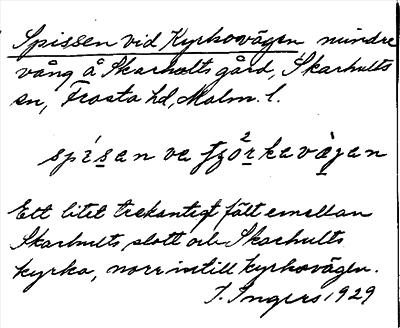 Spissen vid Kyrkovägen, mindre
vång å Skarhults gård, Skarhults
sn, Frosta hd, Malm. l.
spísan va tjö²rkavàgan
Ett litet trekantigt fält emellan
Skarhults slott och Skarhults
kyrka, norr intill kyrkovägen.
I. Ingers 1929